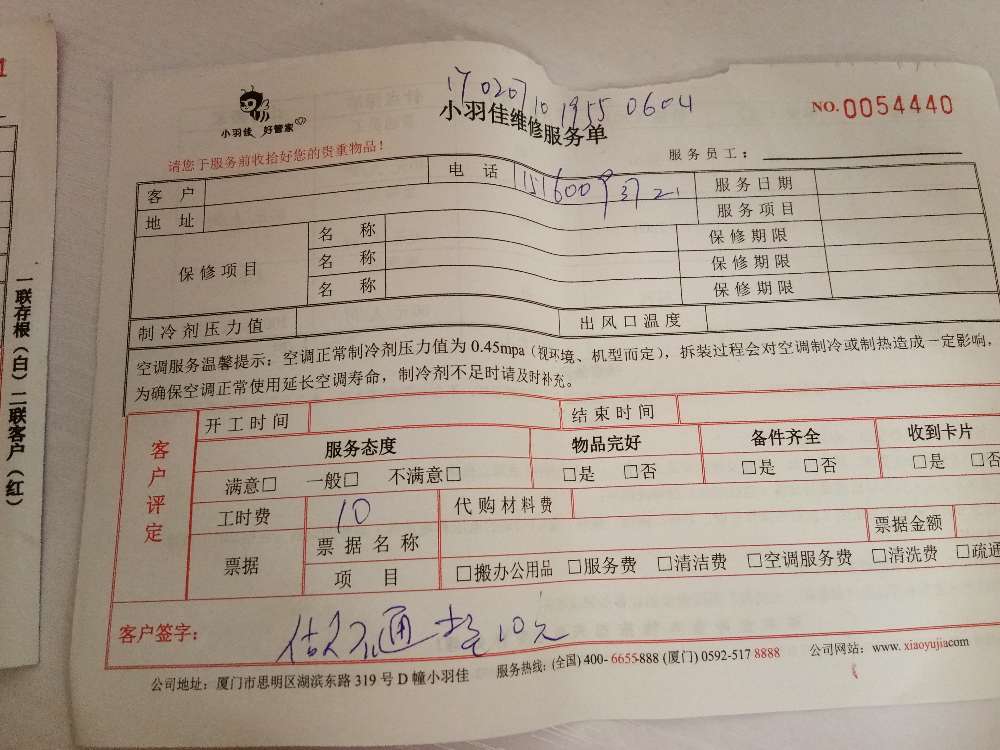 1
一联存根（白）二联客户（红）
17 0207 10 1955 0604
小羽佳 好管家
小羽佳维修服务单
NO.0054440
请您于服务前收拾好您的贵重物品！
服务员工：
客 户 电 话 服务日期
地 址 服务项目
保修项目 名 称 保修期限
名 称 保修期限
名 称 保修期限
制冷剂压力值 出风口温度
空调服务温馨提示：空调正常制冷剂压力值为 0.45mpa（视环境、机型而定），拆装过程会对空调制冷或制热造成一定影响，
为确保空调正常使用延长空调寿命，制冷剂不足时请及时补充。
客户评定
开工时间 结束时间
服务态度 物品完好 备件齐全 收到卡片
满意□ 一般□ 不满意□ □是 □否 □是 □否 □是 □否
工时费 10 代购材料费
票据 票据名称 票据金额
项 目 □搬办公用品 □服务费 □清洁费 □空调服务费 □清洗费 □疏通
客户签字： 通 10元
公司地址：厦门市思明区湖滨东路 319 号 D 幢小羽佳 服务热线：(全国) 400- 6655-888 (厦门) 0592-517 8888 公司网站：www. xiaoyujia.com